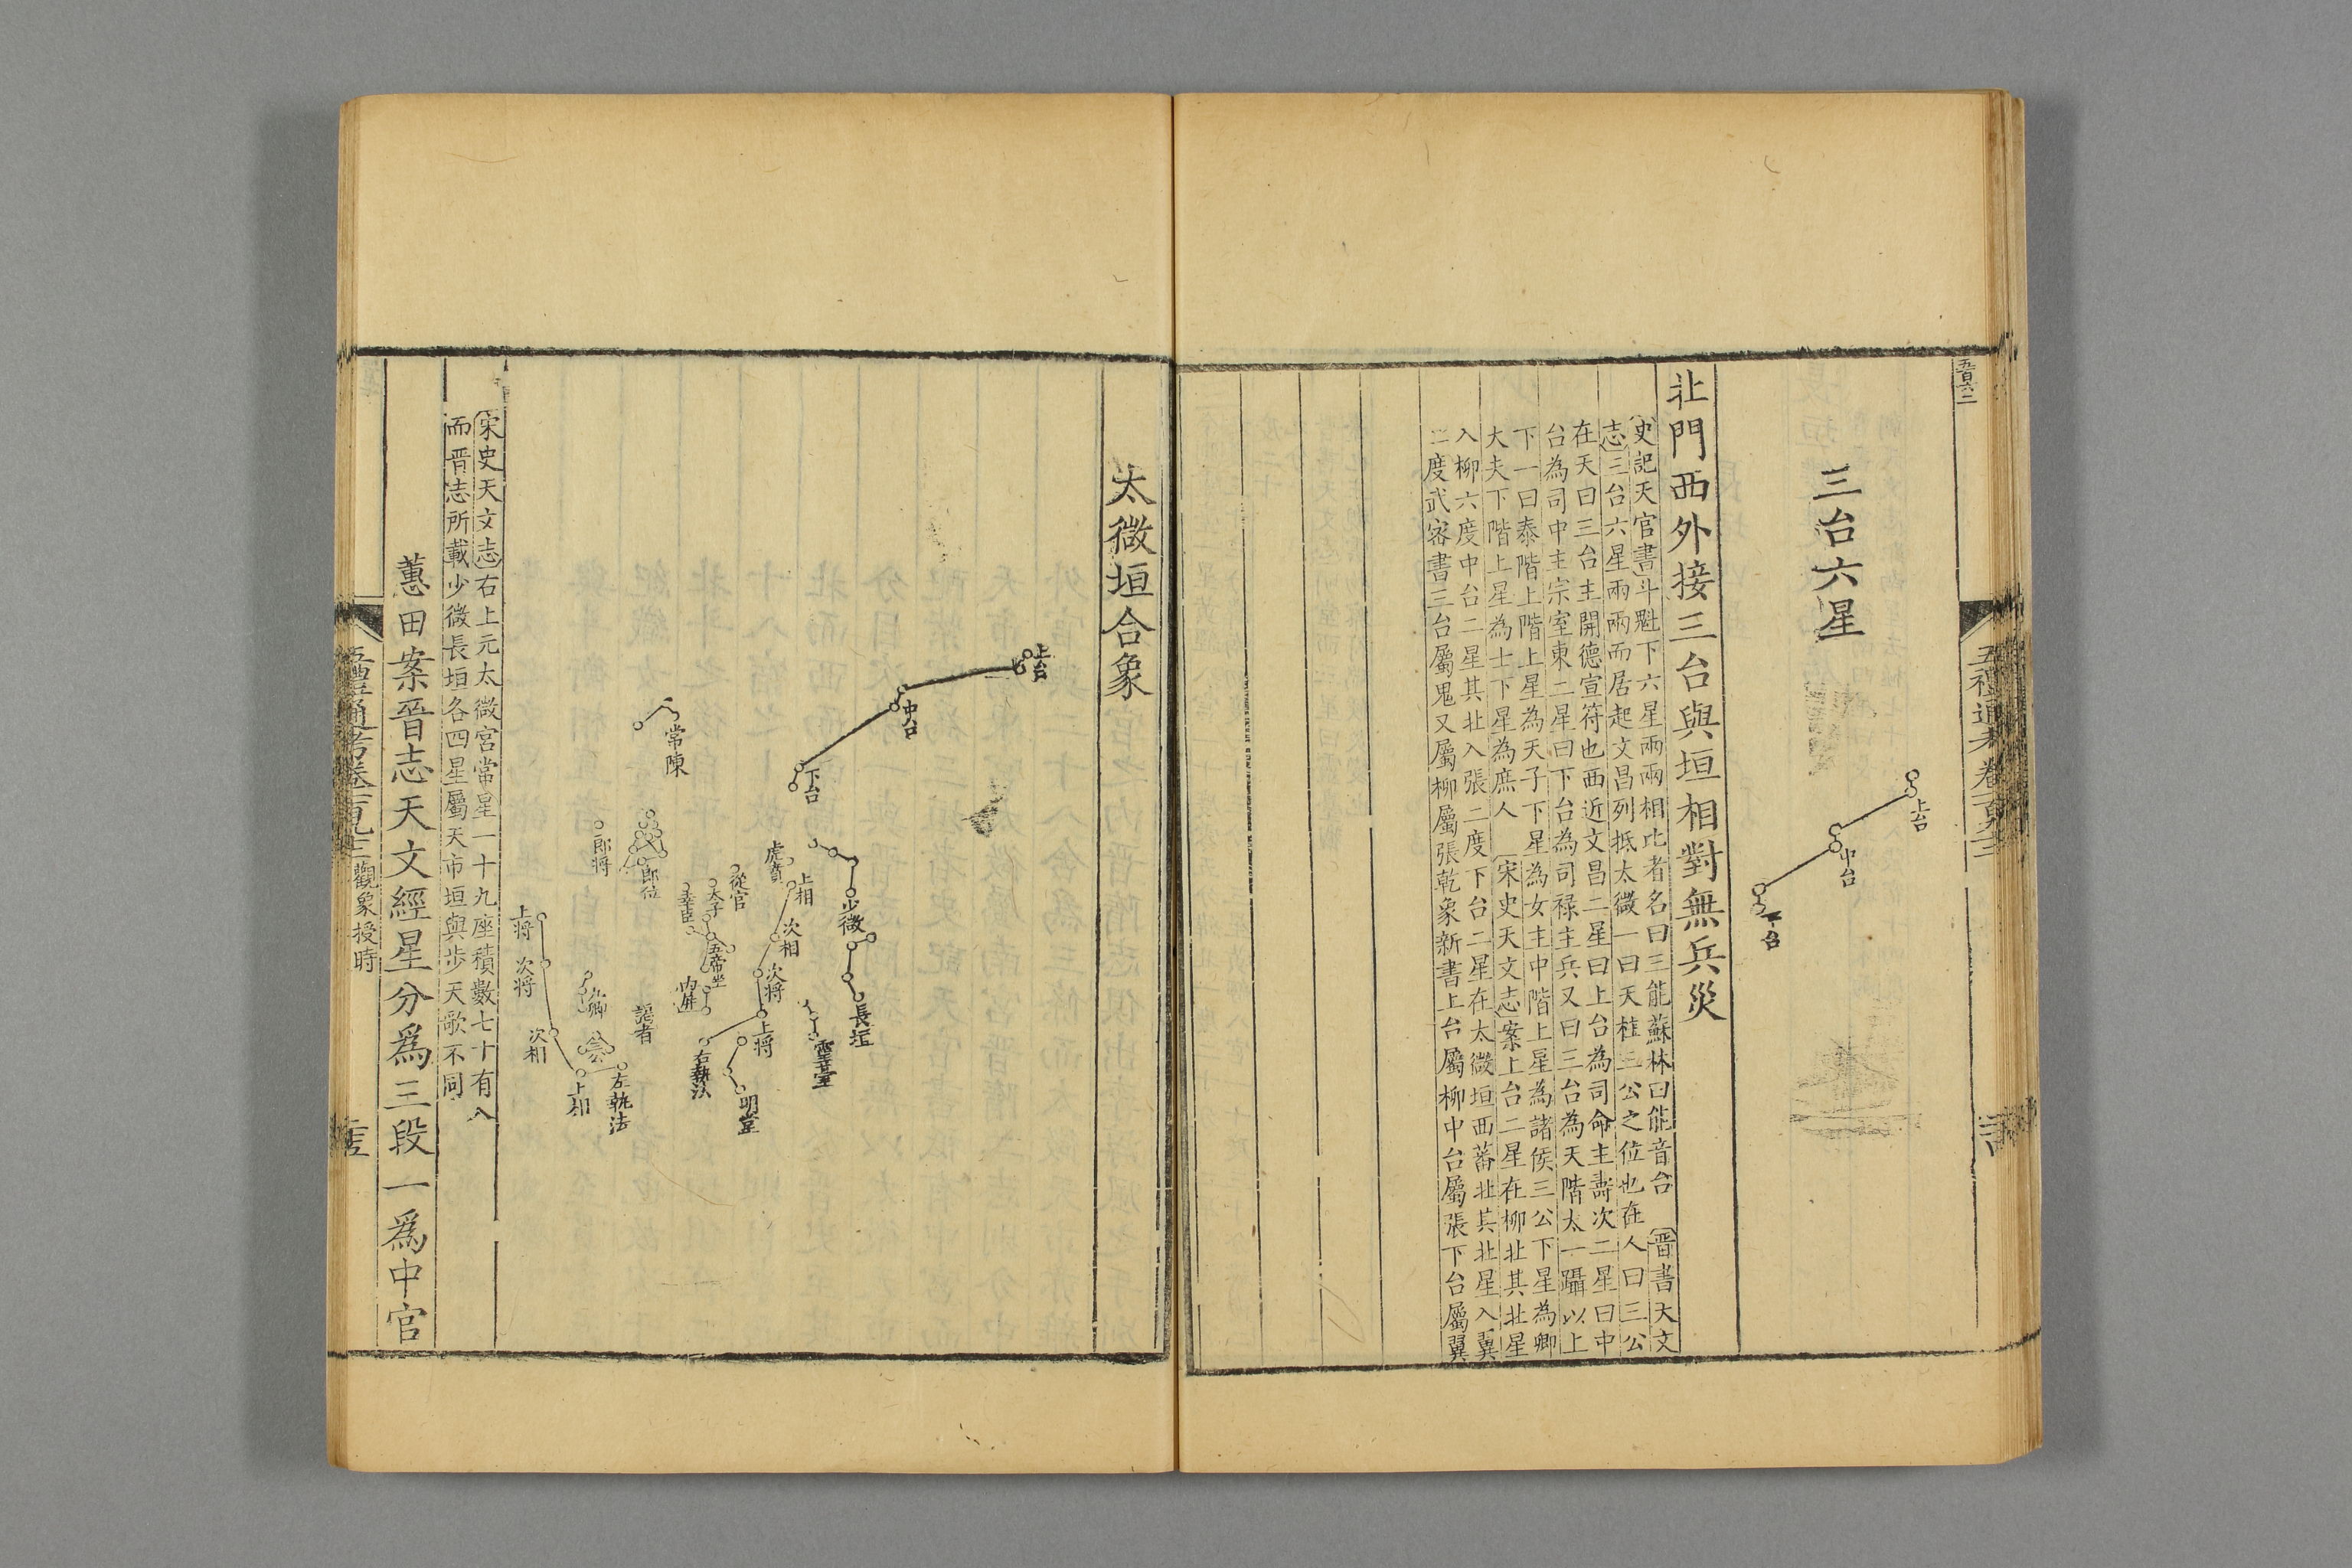 三台六星
上台
中台
下台
北門西外接三台與垣相對無兵災
史記天官書斗魁下六星兩兩相比者名曰三能蘇林曰能音台　晋書天文
志三台六星兩兩而居起文昌列抵太微一曰天柱三公之位也在人曰三公
在天曰三台主開德宣符也西近文昌二星曰上台為司命主壽次二星曰中
台為司中主宗室東二星曰下台為司祿主兵又曰三台為天階太一躡以上
下一曰泰階上階上星為天子下星為女主中階上星為諸侯三公下星為卿
大夫下階上星為士下星為庶人　宋史天文志案上台二星在柳北其北星
入柳六度中台二星其北入張二度下台二星在太微垣西蕃北其北星入翼
二度武宻書三台屬鬼又屬柳屬張乾象新書上台屬柳中台屬張下台屬翼
太微垣合象
上台
中台
下台
常陳
郎將
郎位
幸臣
太子
從官
虎賁
上相
次相
次將
上將
少微
長垣
靈臺
明堂
五帝坐
內屏
右執法
謁者
九卿
上將
次將
次相
上相
左執法
宋史天文志右上元太微宮常星一十九座積數七十有八
而晋志所載少微長垣各四星屬天市垣與步天歌不同
蕙田案晉志天文經星分爲三段一爲中官
五禮通考卷一百九十三觀象授時